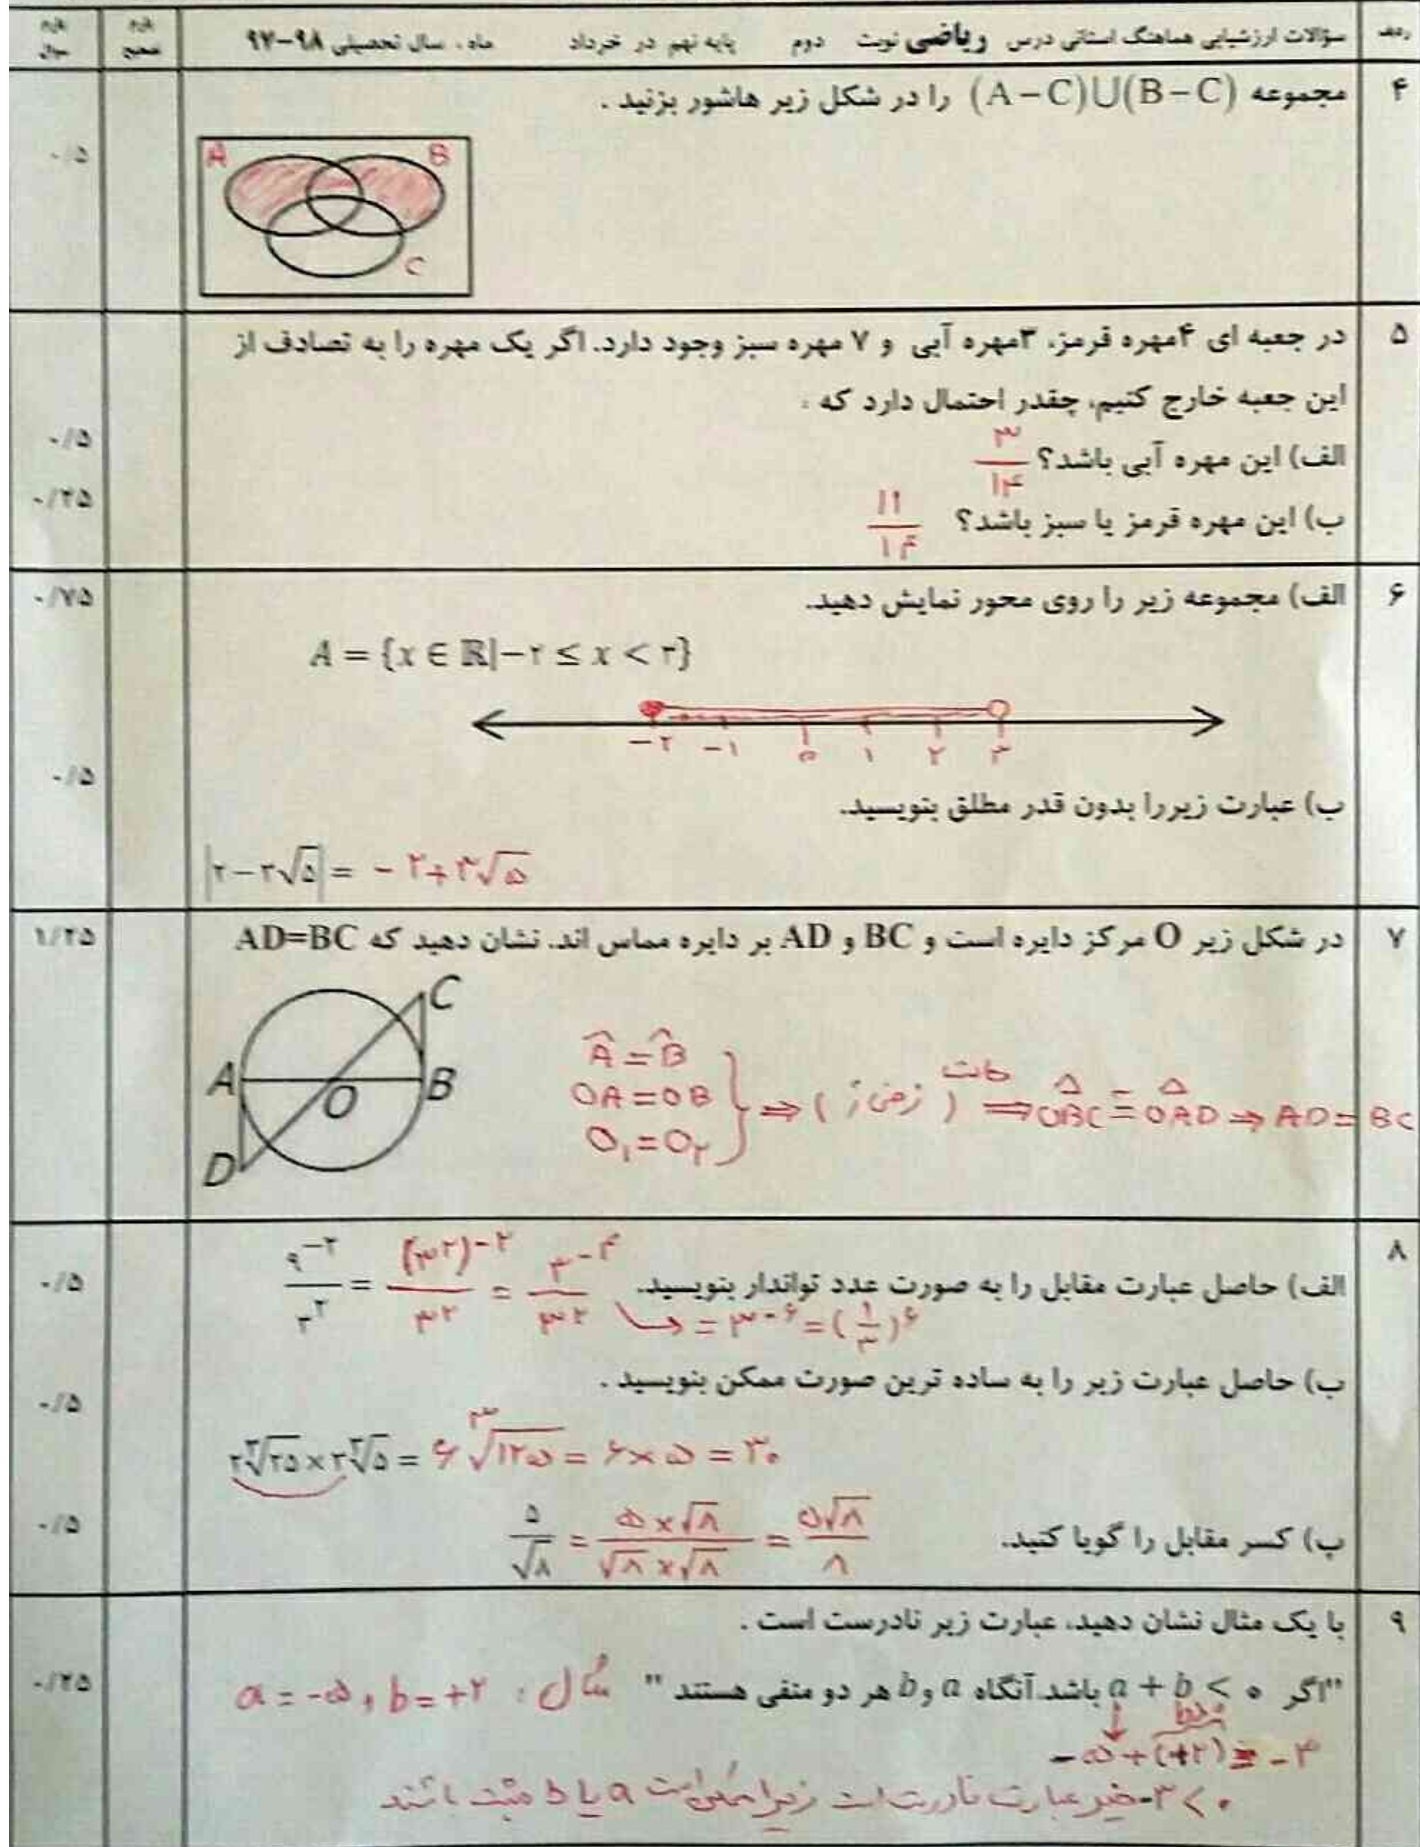 ردیف سؤالات ارزشیابی هماهنگ استانی درس ریاضی نوبت دوم پایه نهم در خرداد ماه، سال تحصیلی ۹۸-۹۷ بارم صحیح بارم سوال
۴ مجموعه (A−C)∪(B−C) را در شکل زیر هاشور بزنید .
۰/۵
A B
C
۵ در جعبه ای ۴مهره قرمز، ۳مهره آبی و ۷ مهره سبز وجود دارد. اگر یک مهره را به تصادف از
این جعبه خارج کنیم، چقدر احتمال دارد که :
الف) این مهره آبی باشد؟ ۳/۱۴ ۰/۵
ب) این مهره قرمز یا سبز باشد؟ ۱۱/۱۴ ۰/۲۵
۶ الف) مجموعه زیر را روی محور نمایش دهید. ۰/۷۵
A = {x ∈ ℝ|−۲ ≤ x < ۳}
−۲ −۱ ۰ ۱ ۲ ۳
ب) عبارت زیررا بدون قدر مطلق بنویسید. ۰/۵
|۲−۳√۵| = −۲+۳√۵
۷ در شکل زیر O مرکز دایره است و BC و AD بر دایره مماس اند. نشان دهید که AD=BC ۱/۲۵
C
A O B
D
Â = B̂
OA = OB
O₁ = O₂
} ⇒ (ز ض ز) حالت ⇒ OBC ≅ OAD ⇒ AD = BC
۸ الف) حاصل عبارت مقابل را به صورت عدد تواندار بنویسید. ۹^−۲/۳^۲ = (۳^۲)^−۲/۳^۲ = ۳^−۴/۳^۲ ۰/۵
= ۳^−۶ = (۱/۳)^۶
ب) حاصل عبارت زیر را به ساده ترین صورت ممکن بنویسید . ۰/۵
۲∛۲۵ × ۳∛۵ = ۶∛۱۲۵ = ۶×۵ = ۳۰
پ) کسر مقابل را گویا کنید. ۵/√۸ = ۵×√۸/√۸×√۸ = ۵√۸/۸ ۰/۵
۹ با یک مثال نشان دهید، عبارت زیر نادرست است .
"اگر a + b < ۰ باشد.آنگاه a و b هر دو منفی هستند" مثال : a = −۵ , b = +۲ ۰/۲۵
−۵+(+۲) = −۳
−۳ < ۰ خیر عبارت نادرست است زیرا ممکن است a یا b مثبت باشند